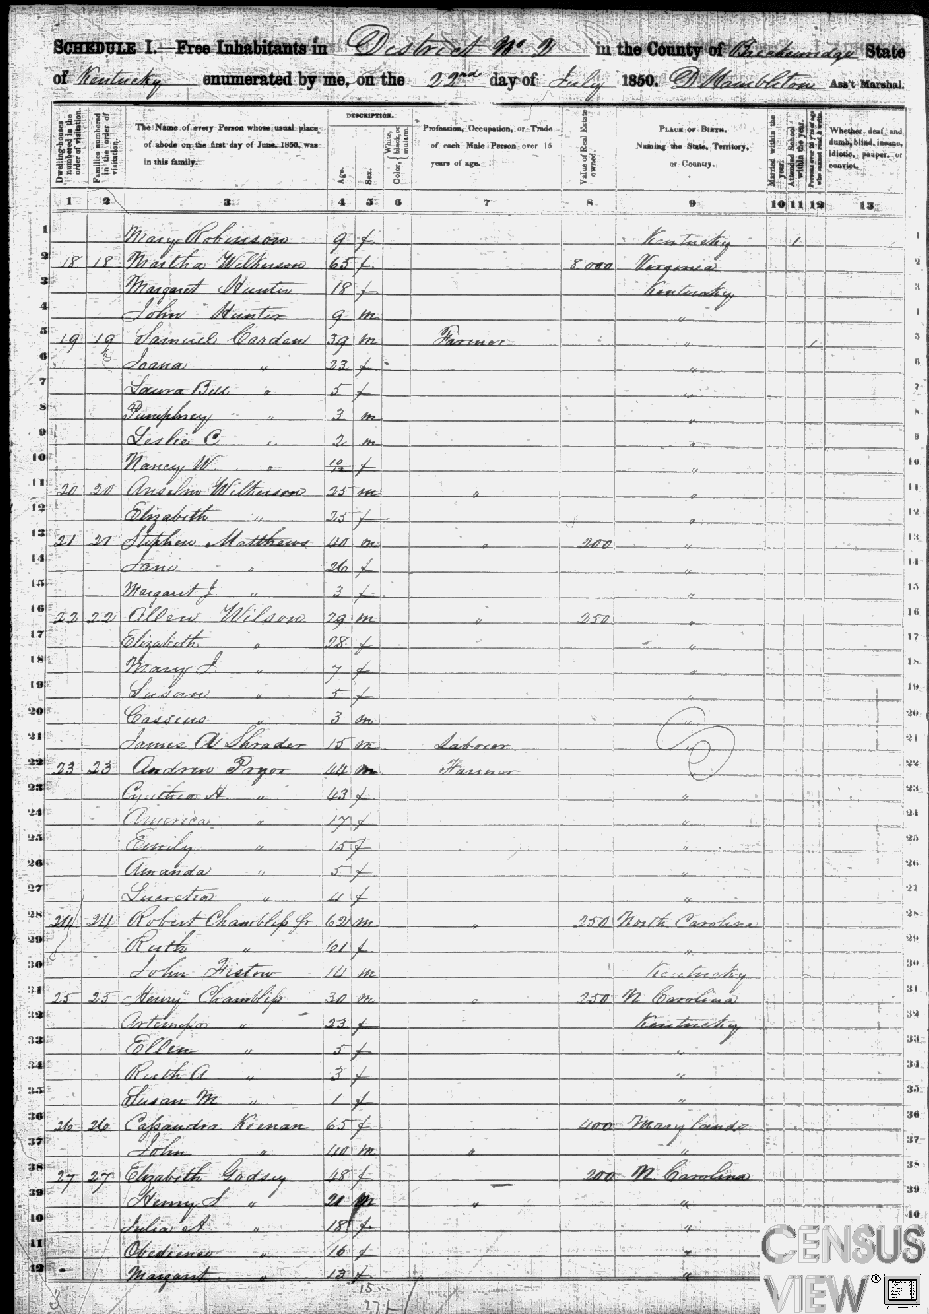 SCHEDULE I.—Free Inhabitants in District No 3 in the County of Breckenridge State
of Kentucky enumerated by me, on the 22nd day of July 1850. D Wambleton Ass't Marshal.
Dwelling-houses numbered in the order of visitation.
Families numbered in the order of visitation.
The Name of every Person whose usual place of abode on the first day of June, 1850, was in this family.
DESCRIPTION.
Age.
Sex.
Color, { White, black, or mulatto.
Profession, Occupation, or Trade of each Male Person over 15 years of age.
Value of Real Estate owned.
PLACE OF BIRTH, Naming the State, Territory, or Country.
Married within the year.
Attended School within the year.
Persons over 20 y'rs of age who cannot read & write.
Whether deaf and dumb, blind, insane, idiotic, pauper, or convict.
1 2 3 4 5 6 7 8 9 10 11 12 13
1 Mary Robinson 9 f Kentucky 1 1
2 18 18 Martha Wilkerson 65 f 8000 Virginia 2
3 Margaret Hunter 18 f Kentucky 3
4 John Hunter 9 m " 4
5 19 19 Samuel Carden 39 m Farmer " 1 5
6 Joana " 23 f " 6
7 Laura Bell " 5 f " 7
8 Pumphrey " 3 m " 8
9 Leslie C. " 2 m " 9
10 Nancy W. " f " 10
11 20 20 Anselm Wilkerson 25 m " " 11
12 Elizabeth " 25 f " 12
13 21 21 Stephen Matthews 40 m " 200 " 13
14 Jane " 26 f " 14
15 Margaret J. " 3 f " 15
16 22 22 Allen Wilson 29 m " 250 " 16
17 Elizabeth " 28 f " 17
18 Mary J. " 7 f " 18
19 Susan " 5 f " 19
20 Cassius " 3 m " 20
21 James A Shrader 15 m Laborer 21
22 23 23 Andrew Pryor 44 m Farmer " 22
23 Cynthia A. " 43 f " 23
24 America " 17 f " 24
25 Emily " 15 f " 25
26 Amanda " 5 f " 26
27 Lucretia " 4 f " 27
28 24 24 Robert Chambliss Sr 62 m " 250 North Carolina 28
29 Ruth " 61 f " 29
30 John Fistow 14 m Kentucky 30
31 25 25 Henry Chambliss 30 m " 250 N Carolina 31
32 Artemissa " 23 f Kentucky 32
33 Ellen " 5 f " 33
34 Ruth A " 3 f " 34
35 Susan M " 1 f " 35
36 26 26 Cassandra Keenan 65 f 400 Maryland 36
37 John " 40 m " " 37
38 27 27 Elizabeth Gadsey 48 f 200 N Carolina 38
39 Henry S " 21 m " " 39
40 Julia A " 18 f " 40
41 Obedience " 16 f "
42 Margaret " 13 f "
15
27
CENSUS VIEW®